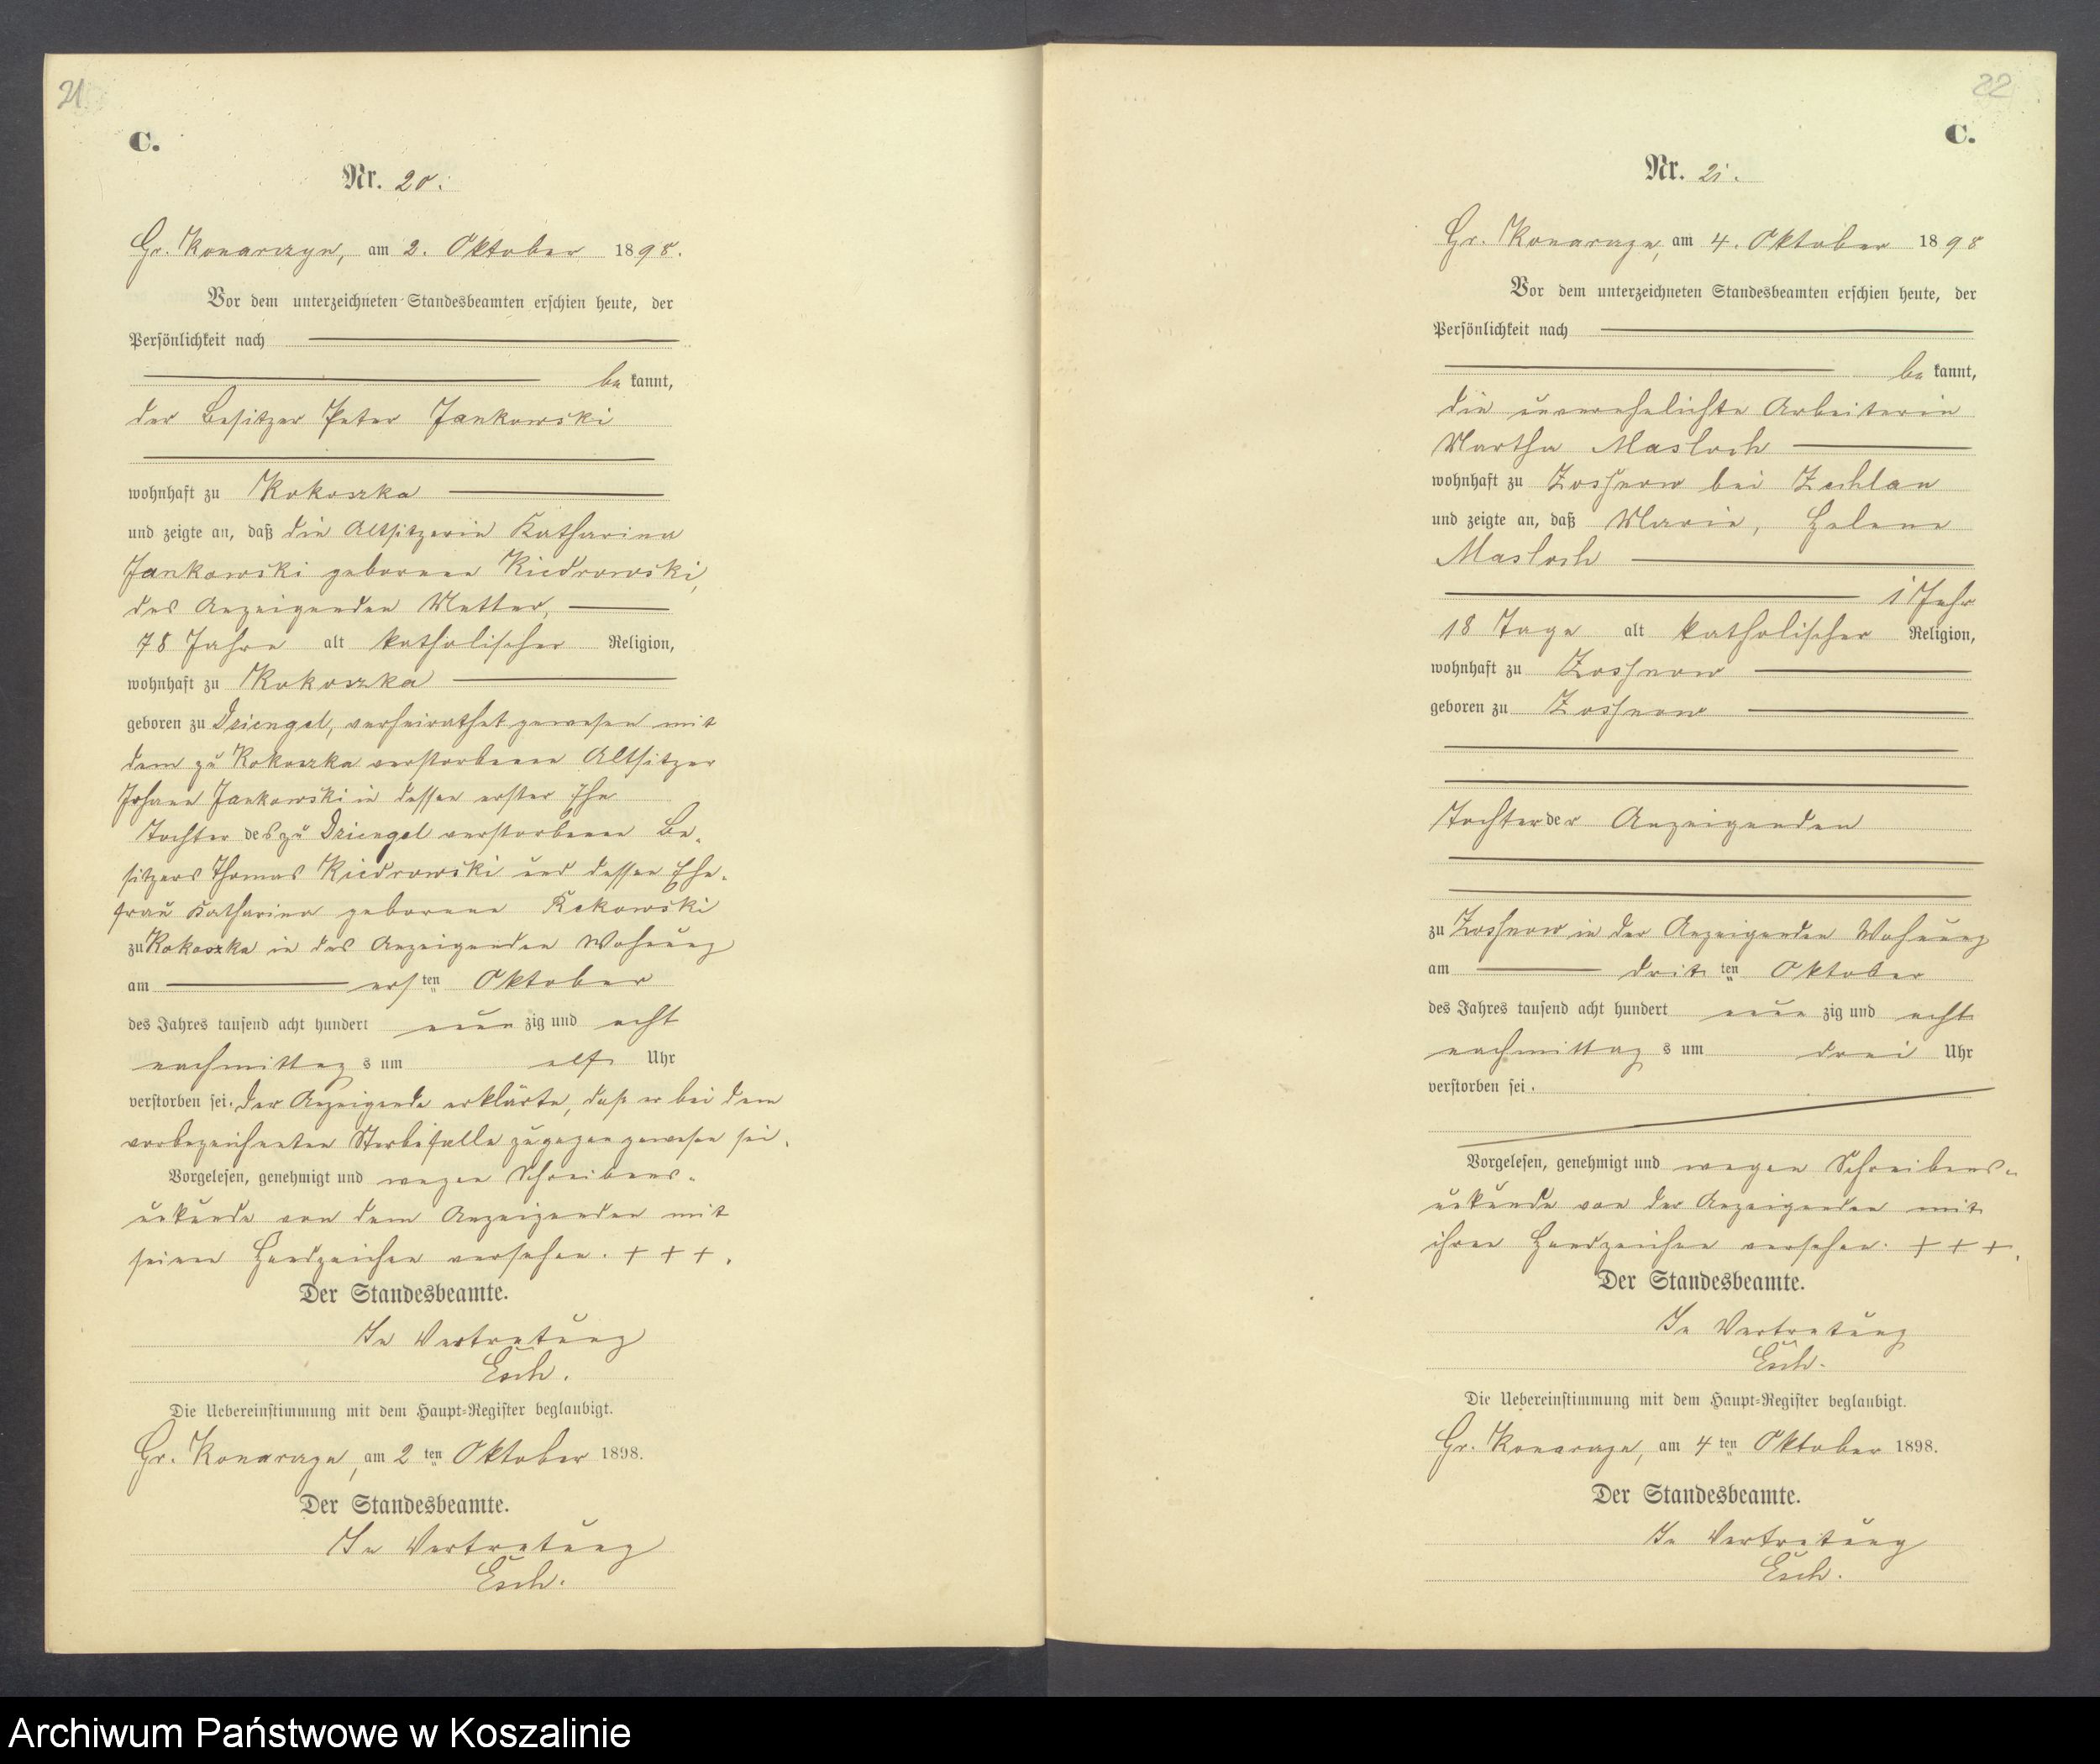 21
C.
Nr. 20.
Gr. Konarczyn, am 2. Oktober 1898.
Vor dem unterzeichneten Standesbeamten erschien heute, der
Persönlichkeit nach
be kannt,
der Besitzer Peter Jankowski
wohnhaft zu Kokoszka
und zeigte an, daß die Altsitzerin Katharina
Jankowski geborene Kiedrowski,
des Anzeigenden Mutter,
78 Jahre alt katholischer Religion,
wohnhaft zu Kokoszka
geboren zu Dziengel, verheirathet gewesen mit
dem zu Kokoszka verstorbenen Altsitzer
Johann Jankowski in dessen erster Ehe
Tochter des zu Dziengel verstorbenen Be-
sitzers Thomas Kiedrowski und dessen Ehe-
frau Katharina geborene Rekowski
zu Kokoszka in des Anzeigenden Wohnung
am ersten Oktober
des Jahres tausend acht hundert neun zig und acht
nachmittag s um elf Uhr
verstorben sei. Der Anzeigende erklärte, daß er bei dem
vorbezeichneten Sterbefalle zugegen gewesen sei.
Vorgelesen, genehmigt und wegen Schreibens-
unkunde von dem Anzeigenden mit
seinen Handzeichen versehen. + + +.
Der Standesbeamte.
In Vertretung
Esch.
Die Uebereinstimmung mit dem Haupt-Register beglaubigt.
Gr. Konarczyn, am 2 ten Oktober 1898.
Der Standesbeamte.
In Vertretung
Esch.
22
C.
Nr. 21.
Gr. Konarczyn, am 4. Oktober 1898
Vor dem unterzeichneten Standesbeamten erschien heute, der
Persönlichkeit nach
be kannt,
die unverehelichte Arbeiterin
Martha Masloch
wohnhaft zu Zossnow bei Zechlau
und zeigte an, daß Marie, Helene
Masloch
1 Jahr
18 Tage alt katholischer Religion,
wohnhaft zu Zossnow
geboren zu Zossnow
Tochter der Anzeigenden
zu Zossnow in der Anzeigenden Wohnung
am drit ten Oktober
des Jahres tausend acht hundert neun zig und acht
nachmittag s um drei Uhr
verstorben sei.
Vorgelesen, genehmigt und wegen Schreibens-
unkunde von der Anzeigenden mit
ihren Handzeichen versehen. + + +.
Der Standesbeamte.
In Vertretung
Esch.
Die Uebereinstimmung mit dem Haupt-Register beglaubigt.
Gr. Konarczyn, am 4 ten Oktober 1898.
Der Standesbeamte.
In Vertretung
Esch.
Archiwum Państwowe w Koszalinie